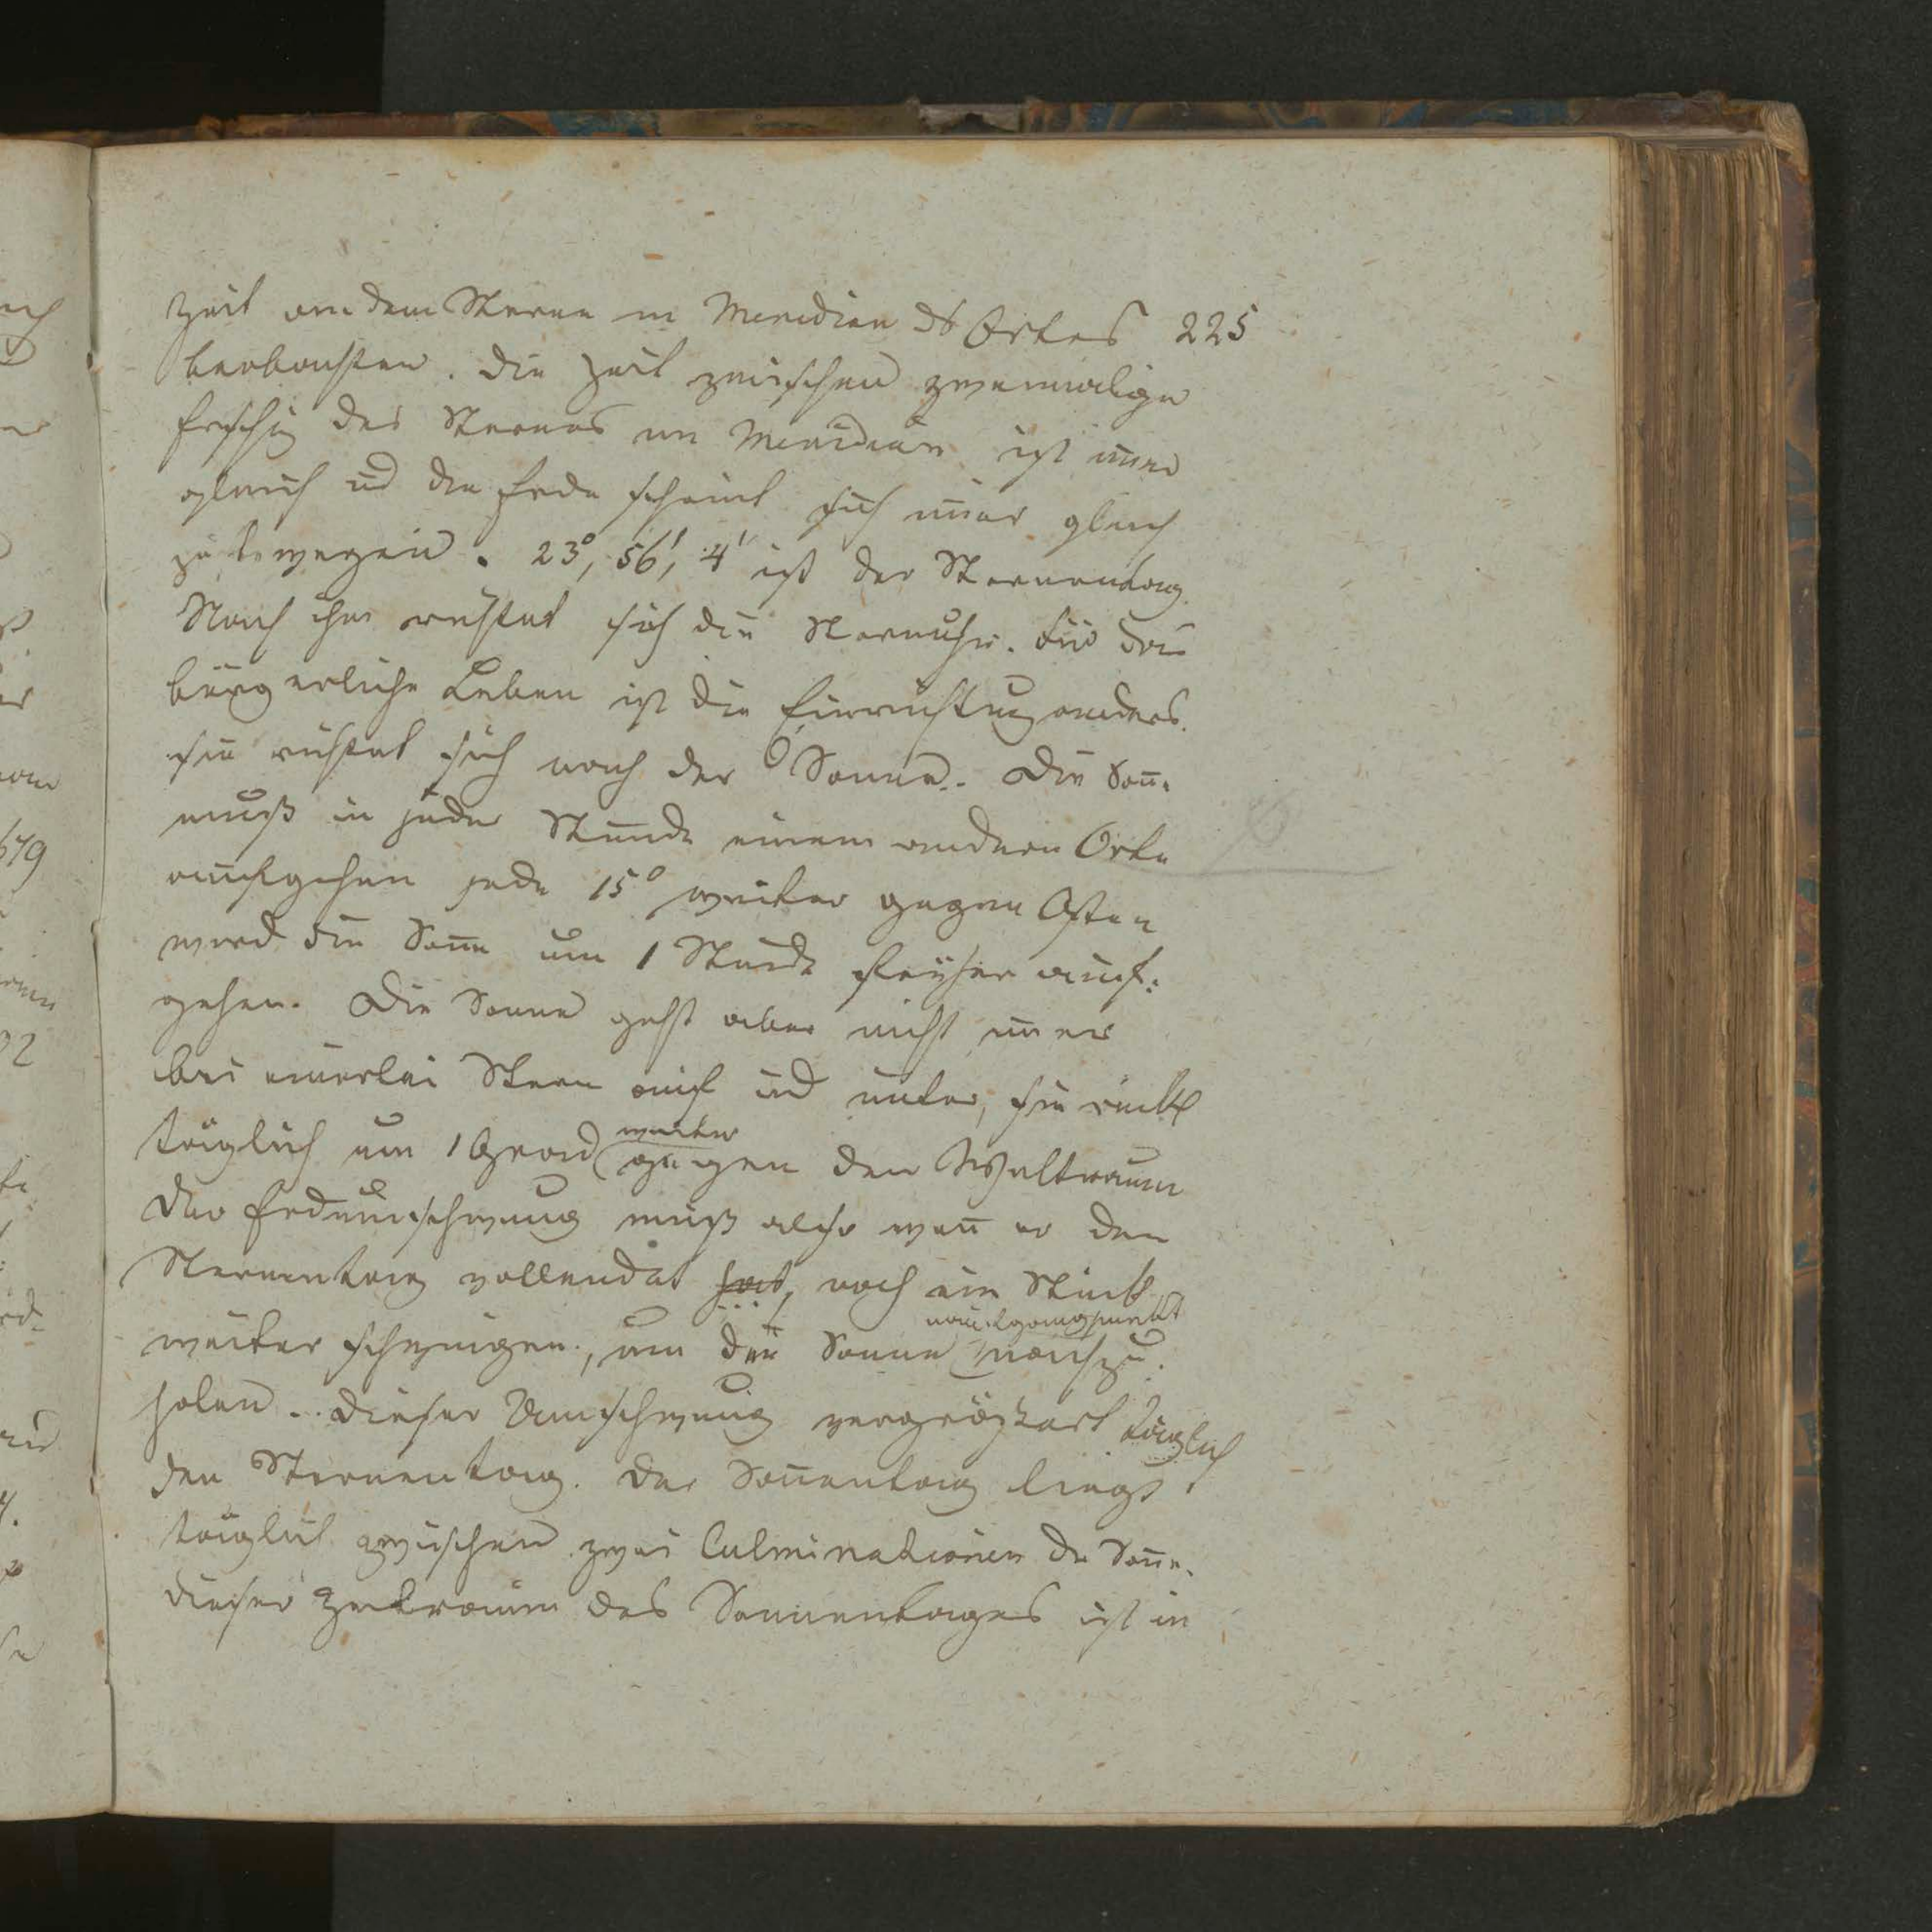 Zeit an dem Sterne in Meridian ds Ortes 225
beobachten. Die Zeit zwischen zweimalige
Erschg des Sternes im Meridian ist im̄er
gleich ud die Erde scheint sich im̄er gleich
zu bewegen. 23°, 56', 4'' ist der Sternentag.
Nach ihm richtet sich die Sternuhr. Für das
bürgerliche Leben ist die Einrichtug anders.
sie richtet sich nach der Sonne. Die Son̄e
muß in jeder Stunde einem andern Orte
aufgehen jede 15° weiter gegen Osten
wird die Son̄e um 1 Stunde früher auf:
gehen. Die Sonne geht aber nicht im̄er
bei einerlei Stern auf ud unter, sie rückt
täglich um 1 Grad weiter gegen den Weltraum
Der Erdumschwung muß also wen̄ er den
Sternentag vollendet hat, noch ein Stück
weiter schwingen, um die Sonne nachzu:
holen. Dieser Umschwung vergrößert täglich
den Sternentag. Der Son̄entag liegt
täglich zwischen zwei Culminationen der Son̄e.
dieser Zeitraum des Sonnentages ist in